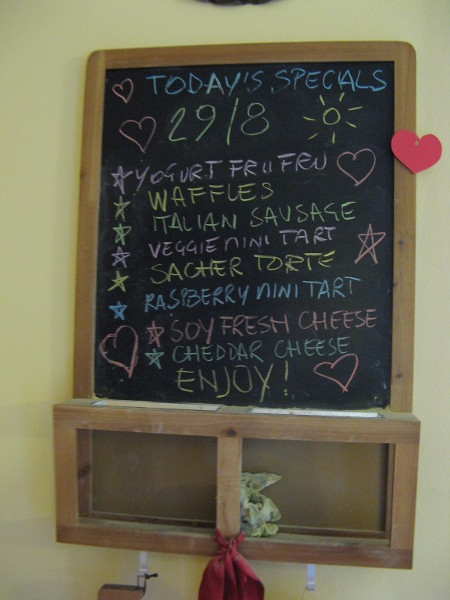 TODAY'S SPECIALS
29/8
YOGURT FRUFRU
WAFFLES
ITALIAN SAUSAGE
VEGGIE MINI TART
SACHER TORTE
RASPBERRY MINI TART
SOY FRESH CHEESE
CHEDDAR CHEESE
ENJOY!